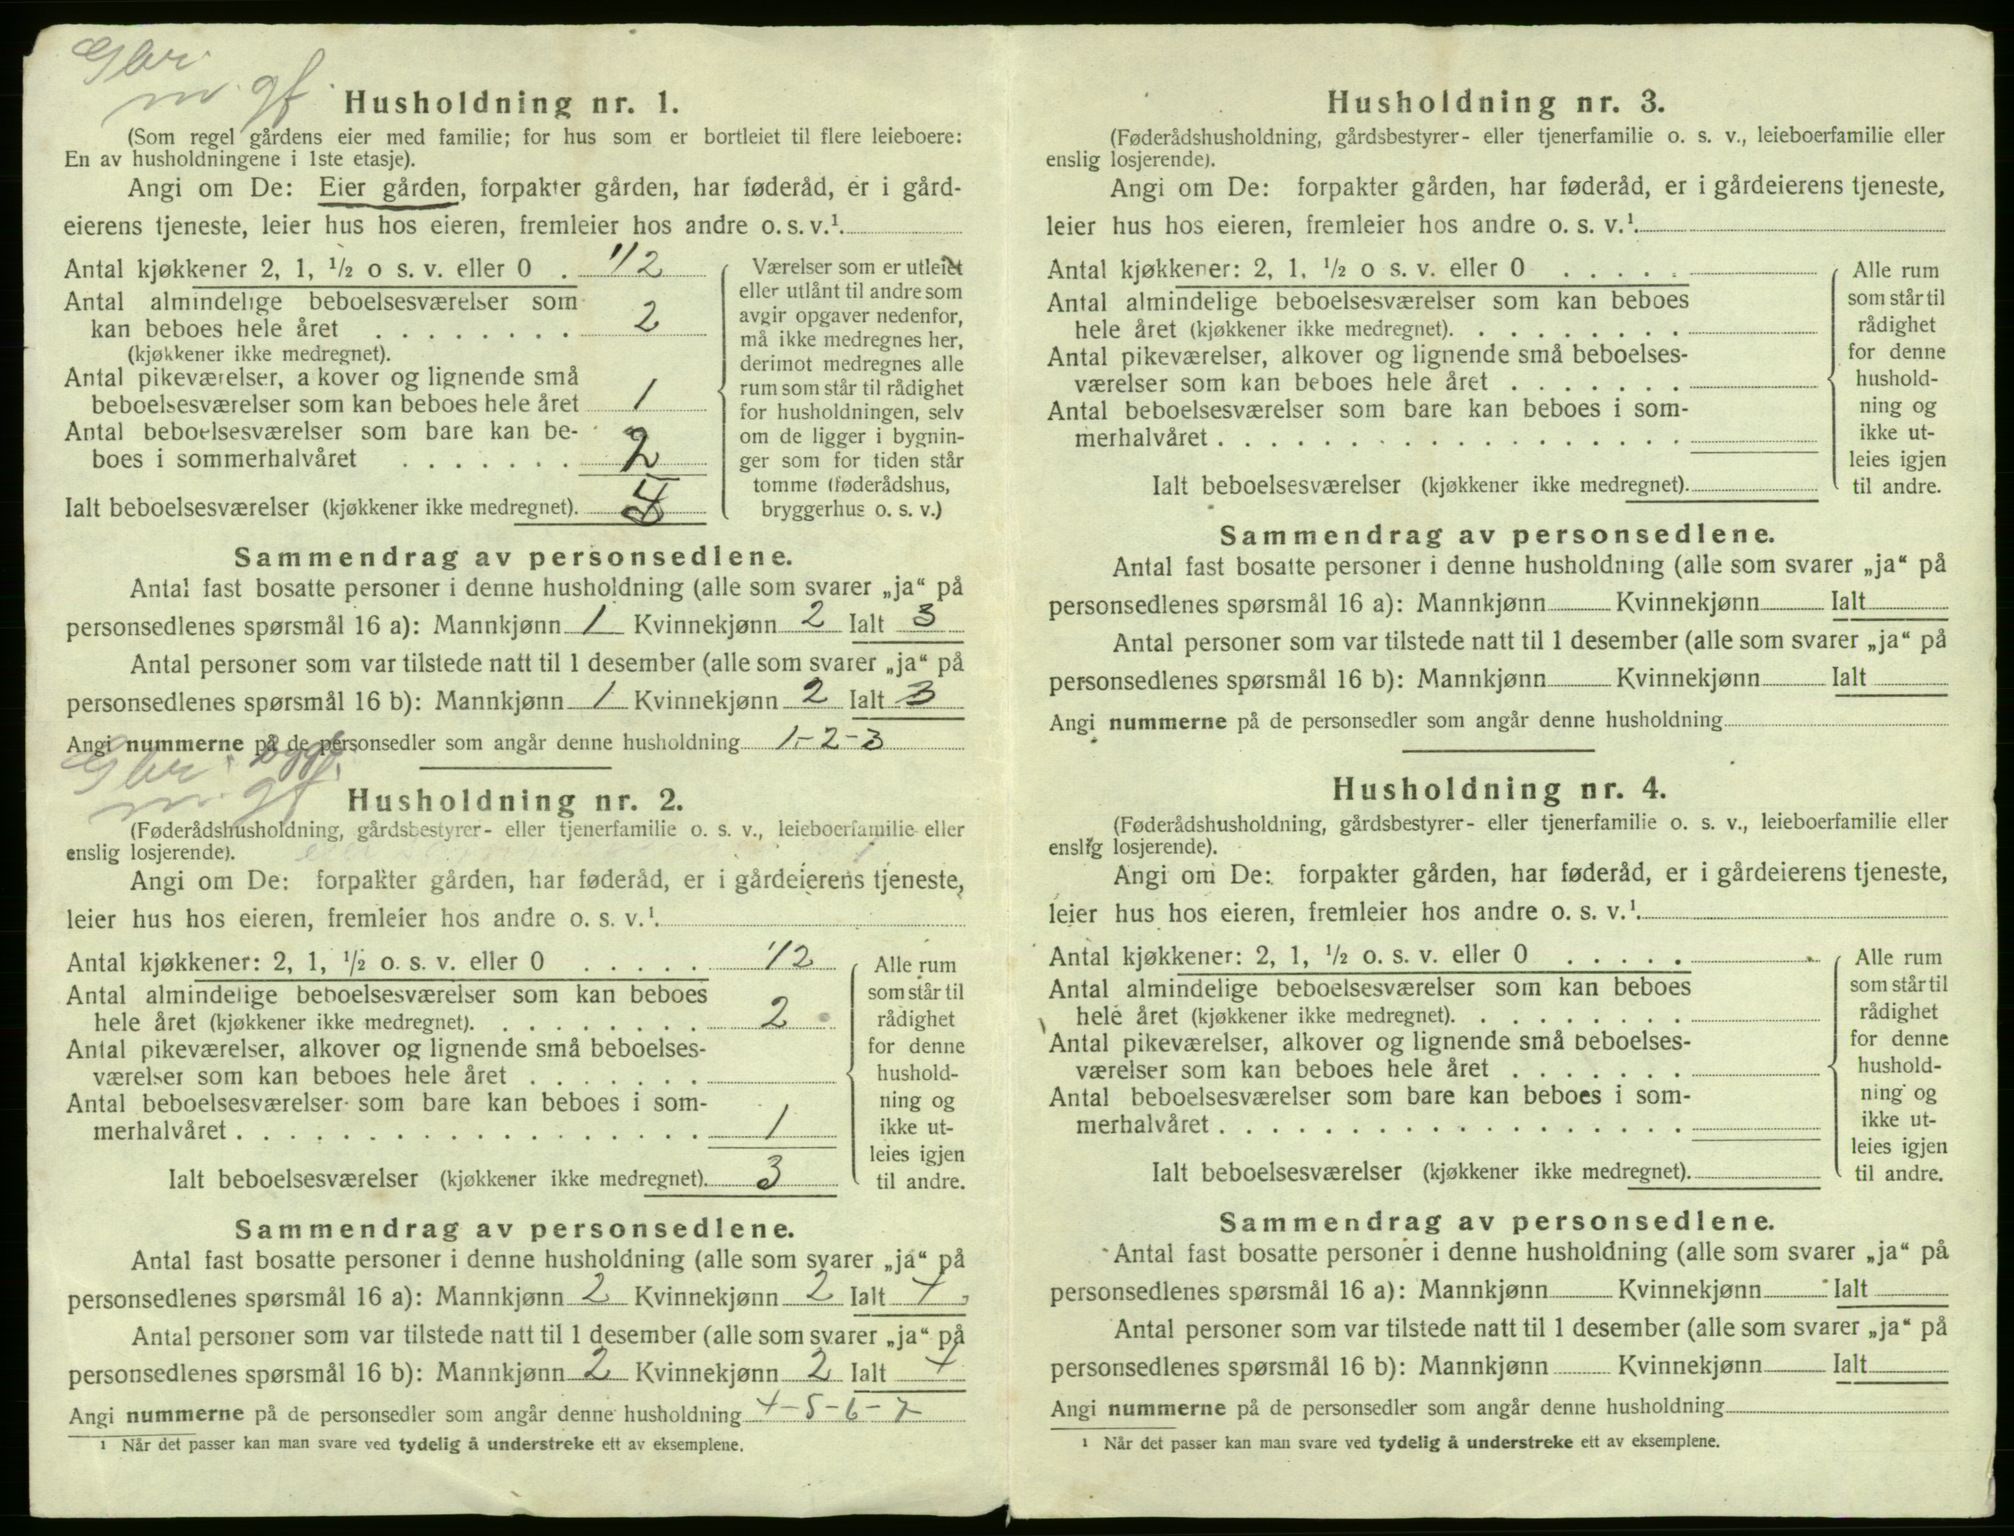 Gbr.
m. gf.
Husholdning nr. 1.
(Som regel gårdens eier med familie; for hus som er bortleiet til flere leieboere:
En av husholdningene i 1ste etasje).
Angi om De: Eier gården, forpakter gården, har føderåd, er i gård-
eierens tjeneste, leier hus hos eieren, fremleier hos andre o. s. v.¹
Antal kjøkkener 2, 1, ½ o s. v. eller 0 . 1/2
Antal almindelige beboelsesværelser som
kan beboes hele året . . . . . . . . 2
(kjøkkener ikke medregnet).
Antal pikeværelser, a kover og lignende små
beboelsesværelser som kan beboes hele året 1
Antal beboelsesværelser som bare kan be-
boes i sommerhalvåret . . . . . . . 2
Ialt beboelsesværelser (kjøkkener ikke medregnet).
Værelser som er utleiet
eller utlånt til andre som
avgir opgaver nedenfor,
må ikke medregnes her,
derimot medregnes alle
rum som står til rådighet
for husholdningen, selv
om de ligger i bygnin-
ger som for tiden står
tomme (føderådshus,
bryggerhus o. s. v.)
Sammendrag av personsedlene.
Antal fast bosatte personer i denne husholdning (alle som svarer „ja“ på
personsedlenes spørsmål 16 a): Mannkjønn 1 Kvinnekjønn 2 Ialt 3
Antal personer som var tilstede natt til 1 desember (alle som svarer „ja“ på
personsedlenes spørsmål 16 b): Mannkjønn 1 Kvinnekjønn 2 Ialt 3
Angi nummerne på de personsedler som angår denne husholdning 1-2-3
Gbr.
m. gf.
Husholdning nr. 2.
(Føderådshusholdning, gårdsbestyrer- eller tjenerfamilie o. s. v., leieboerfamilie eller
enslig losjerende).
Angi om De: forpakter gården, har føderåd, er i gårdeierens tjeneste,
leier hus hos eieren, fremleier hos andre o. s. v.¹
Antal kjøkkener: 2, 1, ½ o. s. v. eller 0 . . . . . 1/2
Antal almindelige beboelsesværelser som kan beboes
hele året (kjøkkener ikke medregnet). . . . . . . . . 2
Antal pikeværelser, alkover og lignende små beboelses-
værelser som kan beboes hele året . . . . . . .
Antal beboelsesværelser som bare kan beboes i som-
merhalvåret . . . . . . . . . . . . . . . . . . 1
Ialt beboelsesværelser (kjøkkener ikke medregnet). 3
Alle rum
som står til
rådighet
for denne
hushold-
ning og
ikke ut-
leies igjen
til andre.
Sammendrag av personsedlene.
Antal fast bosatte personer i denne husholdning (alle som svarer „ja“ på
personsedlenes spørsmål 16 a): Mannkjønn 2 Kvinnekjønn 2 Ialt 4
Antal personer som var tilstede natt til 1 desember (alle som svarer „ja“ på
personsedlenes spørsmål 16 b): Mannkjønn 2 Kvinnekjønn 2 Ialt 4
Angi nummerne på de personsedler som angår denne husholdning 4-5-6-7
¹ Når det passer kan man svare ved tydelig å understreke ett av eksemplene.
Husholdning nr. 3.
(Føderådshusholdning, gårdsbestyrer- eller tjenerfamilie o. s. v., leieboerfamilie eller
enslig losjerende).
Angi om De: forpakter gården, har føderåd, er i gårdeierens tjeneste,
leier hus hos eieren, fremleier hos andre o. s. v.¹
Antal kjøkkener: 2, 1, ½ o s. v. eller 0 . . . . .
Antal almindelige beboelsesværelser som kan beboes
hele året (kjøkkener ikke medregnet). . . . . . . . .
Antal pikeværelser, alkover og lignende små beboelses-
værelser som kan beboes hele året . . . . . . .
Antal beboelsesværelser som bare kan beboes i som-
merhalvåret . . . . . . . . . . . . . . . . . .
Ialt beboelsesværelser (kjøkkener ikke medregnet).
Alle rum
som står til
rådighet
for denne
hushold-
ning og
ikke ut-
leies igjen
til andre.
Sammendrag av personsedlene.
Antal fast bosatte personer i denne husholdning (alle som svarer „ja“ på
personsedlenes spørsmål 16 a): Mannkjønn Kvinnekjønn Ialt
Antal personer som var tilstede natt til 1 desember (alle som svarer „ja“ på
personsedlenes spørsmål 16 b): Mannkjønn Kvinnekjønn Ialt
Angi nummerne på de personsedler som angår denne husholdning
Husholdning nr. 4.
(Føderådshusholdning, gårdsbestyrer- eller tjenerfamilie o. s. v., leieboerfamilie eller
enslig losjerende).
Angi om De: forpakter gården, har føderåd, er i gårdeierens tjeneste,
leier hus hos eieren, fremleier hos andre o. s. v.¹
Antal kjøkkener: 2, 1, ½ o. s. v. eller 0 . . . . .
Antal almindelige beboelsesværelser som kan beboes
hele året (kjøkkener ikke medregnet). . . . . . . . .
Antal pikeværelser, alkover og lignende små beboelses-
værelser som kan beboes hele året . . . . . . .
Antal beboelsesværelser som bare kan beboes i som-
merhalvåret . . . . . . . . . . . . . . . . . .
Ialt beboelsesværelser (kjøkkener ikke medregnet).
Alle rum
som står til
rådighet
for denne
hushold-
ning og
ikke ut-
leies igjen
til andre.
Sammendrag av personsedlene.
Antal fast bosatte personer i denne husholdning (alle som svarer „ja“ på
personsedlenes spørsmål 16 a): Mannkjønn Kvinnekjønn Ialt
Antal personer som var tilstede natt til 1 desember (alle som svarer „ja“ på
personsedlenes spørsmål 16 b): Mannkjønn Kvinnekjønn Ialt
Angi nummerne på de personsedler som angår denne husholdning
¹ Når det passer kan man svare ved tydelig å understreke ett av eksemplene.